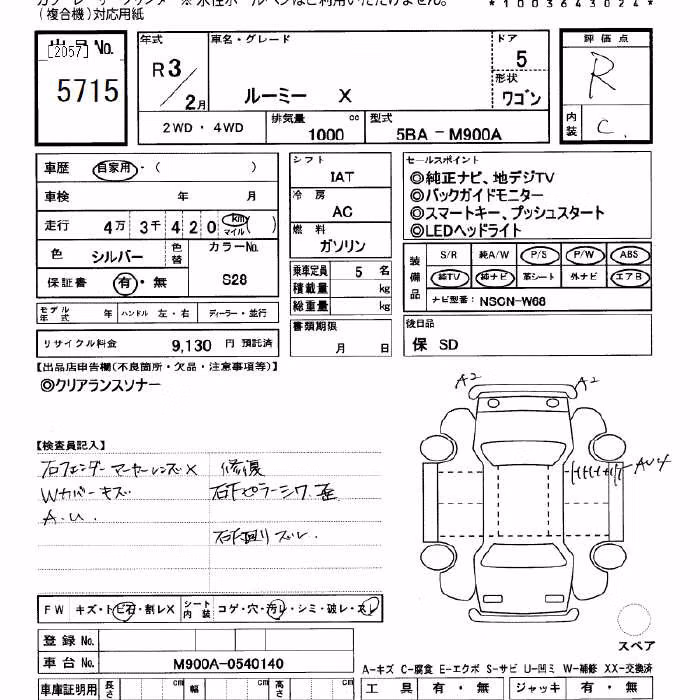 (複合機)対応用紙
*1003643024*
出品 No.
[2057]
5715
年式
R3
2月
車名・グレード
ルーミー X
ドア
5
形状
ワゴン
評価点
R
内装
C
2WD・4WD
排気量
1000 cc
型式
5BA-M900A
車歴 自家用・( )
車検 年 月
走行 4万 3千 4 2 0 km マイル ( )
色 シルバー 色替
カラーNo.
S28
保証書 有・無
モデル年式 年 ハンドル 左・右 ディーラー・並行
リサイクル料金 9,130 円 預託済
シフト
IAT
冷房
AC
燃料
ガソリン
乗車定員 5 名
積載量 kg
総重量 kg
書類期限
月 日
セールスポイント
◎純正ナビ、地デジTV
◎バックガイドモニター
◎スマートキー、プッシュスタート
◎LEDヘッドライト
装備品
S/R 純A/W P/S P/W ABS
純TV 純ナビ 革シート 外ナビ エアB
ナビ型番: NSCN-W68
後日品
保 SD
【出品店申告欄(不良箇所・欠品・注意事項等)】
◎クリアランスソナー
【検査員記入】
右フェンダーマーカーレンズX
Wカバーキズ
A.U.
修復
右Fピラーシワ、歪
右F廻りズレ
A2
A2
AU4
FW キズ・トビ石・割レX シート内装 コゲ・穴・汚レ・シミ・破レ・スレ
登録 No.
車台 No. M900A-0540140
車庫証明用 長さ cm 幅 cm 高さ cm
スペア
A-キズ C-腐食 E-エクボ S-サビ U-凹ミ W-補修 XX-交換済
工具 有・無 ジャッキ 有・無